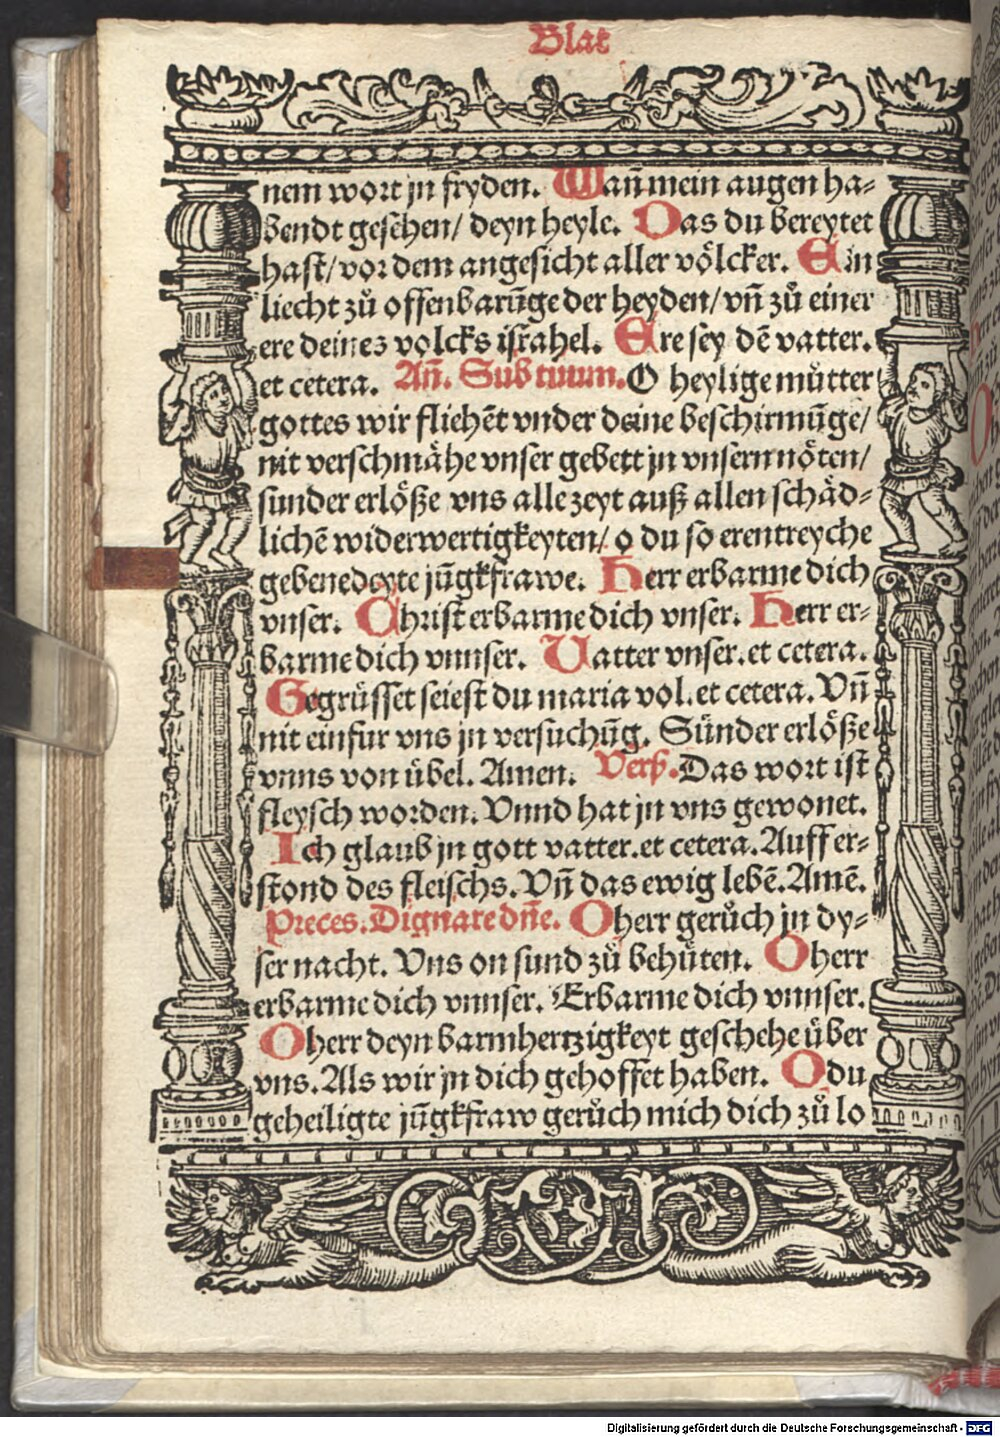 Blat
nem wort jn fryden. Wañ mein augen ha⸗
bendt gesehen/ deyn heyle. Das du bereytet
hast/ vor dem angesicht aller völcker. Ein
liecht zů offenbarũge der heyden/ vñ zů einer
ere deines volcks israhel. Ere sey dẽ vatter.
et cetera. Añ. Sub tuum. O heylige můtter
gottes wir fliehẽt vnder deine beschirmũge/
nit verschmähe vnser gebett jn vnsern nöten/
sunder erlöße vns alle zeyt auß allen schäd⸗
lichẽ widerwertigkeyten/ o du so erentreyche
gebenedeyte jũgkfrawe. Herr erbarme dich
vnser. Christ erbarme dich vnser. Herr er⸗
barme dich vnnser. Vatter vnser. et cetera.
Gegrüsset seiest du maria vol. et cetera. Vñ
nit einfur vns jn versuchũg. Sünder erlöße
vnns von übel. Amen. Verß. Das wort ist
fleysch worden. Vnnd hat jn vns gewonet.
Ich glaub jn gott vatter. et cetera. Auff er⸗
stond des fleischs. Vñ das ewig lebẽ. Amẽ.
Preces. Dignare dñe. O herr gerůch jn dy⸗
ser nacht. Vns on sund zů behůten. O herr
erbarme dich vnnser. Erbarme dich vnnser.
O herr deyn barmhertzigkeyt geschehe über
vns. Als wir jn dich gehoffet haben. O du
geheiligte jũgkfraw gerůch mich dich zů lo
Digitalisierung gefördert durch die Deutsche Forschungsgemeinschaft - DFG